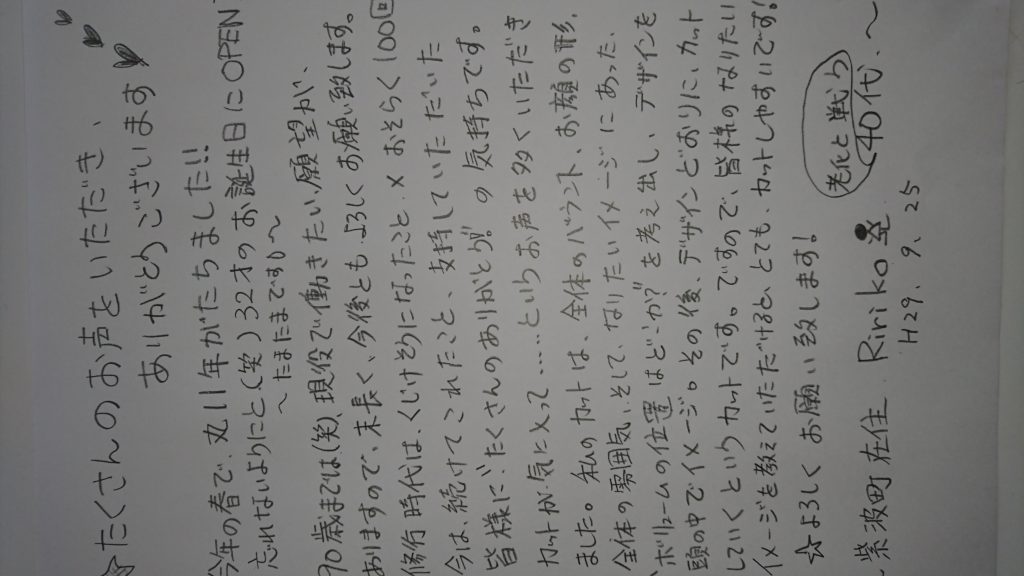 ☆たくさんのお声をいただき、
ありがとうございます
今年の春で、丸11年がたちました!!
忘れないようにと(笑)32才のお誕生日にOPEN
～たまたまですョ～
90歳までは(笑)、現役で働きたい願望が、
ありますので、末長く、今後ともよろしくお願い致します。
修行時代は、くじけそうになったこと、× おそらく100回
今は、続けてこれたこと、支持していただいた
皆様に"たくさんのありがとう!!"の気持ちです。
カットが気に入って‥‥‥というお声を多くいただき
ました。私のカットは、全体のバランス、お顔の形、
全体の雰囲気、そして、なりたいイメージにあった、
"ボリュームの位置はどこか?"を考え出し、デザインを
頭の中でイメージ。その後、デザインどおりに、カット
していくというカットです。ですので、皆様のなりたい
イメージを教えていただけると、とても、カットしやすいです!
☆よろしくお願い致します!
老化と戦う
～紫波町在住 Ririko 40代、～
H29.9.25